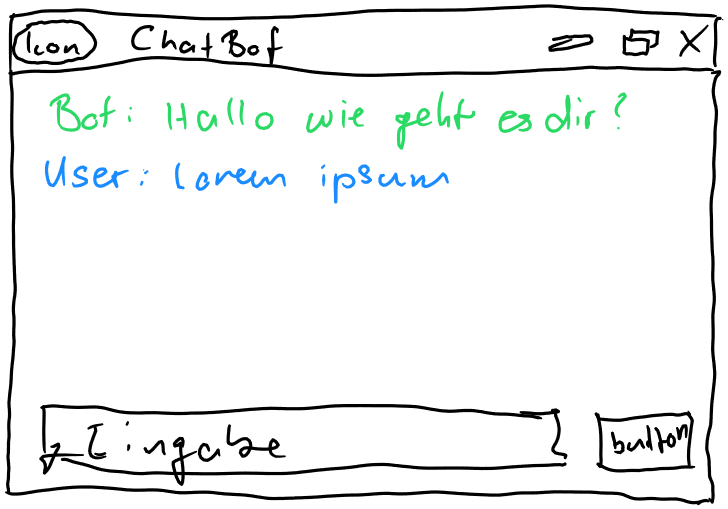 Icon ChatBot
Bot: Hallo wie geht es dir?
User: Lorem ipsum
Eingabe button